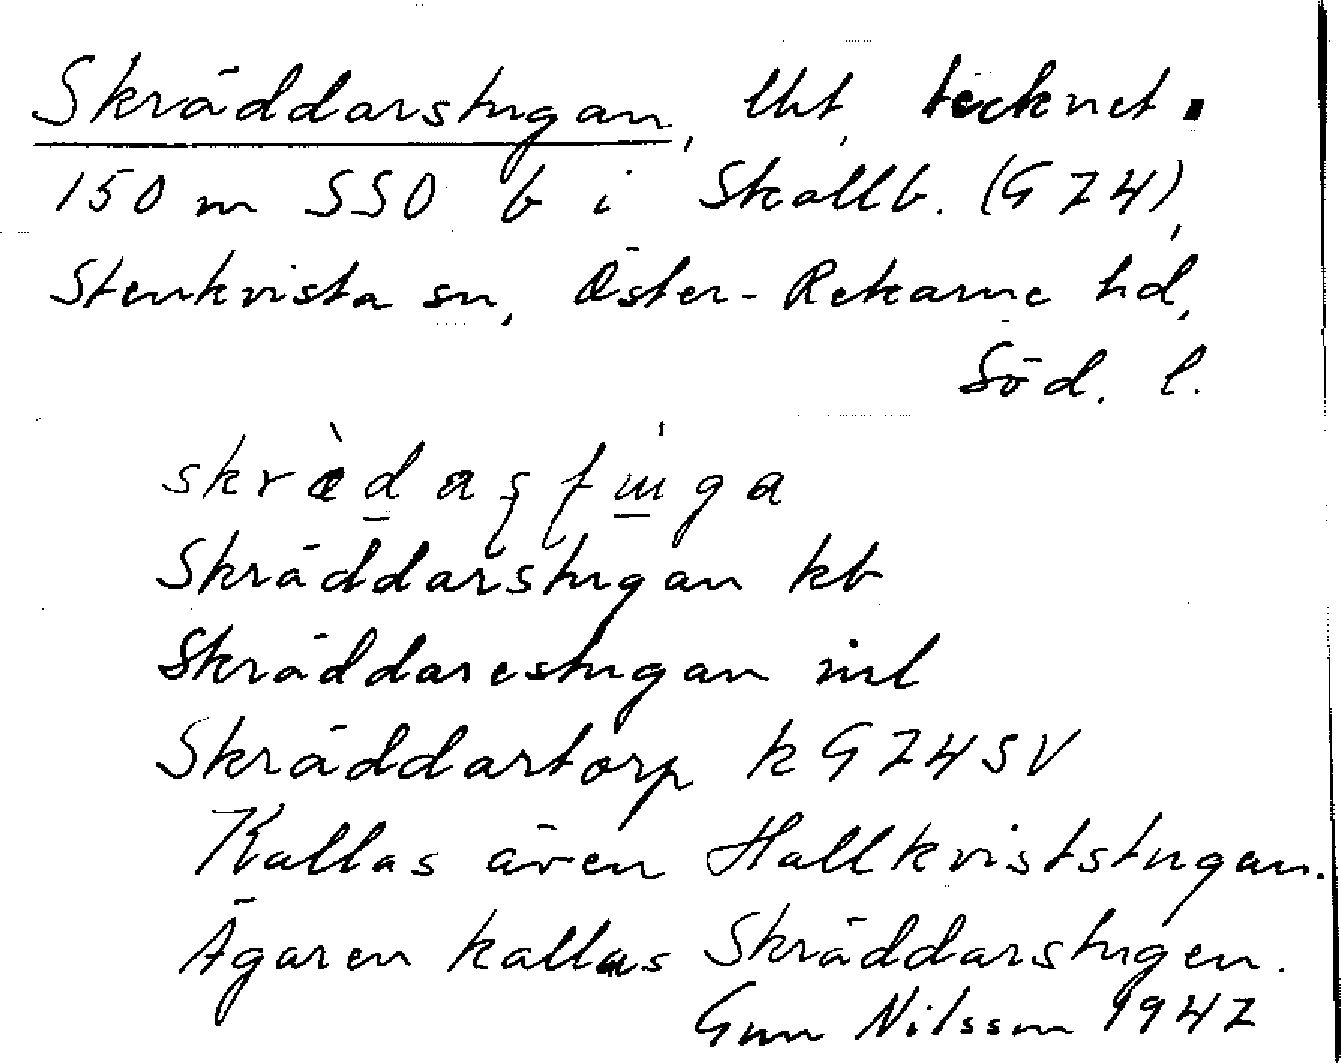 Skräddarstugan, lht, tecknet ▪
150 m SSO b i Skallb. (G 74),
Stenkvista sn, Öster-Rekarne hd,
Söd. l.
Skräddarstugan kb
Skräddarestugan ml
Skräddartorp k G74SV
Kallas även Hallkviststugan.
Ägaren kallas Skräddarstugen.
Gun Nilsson 1947